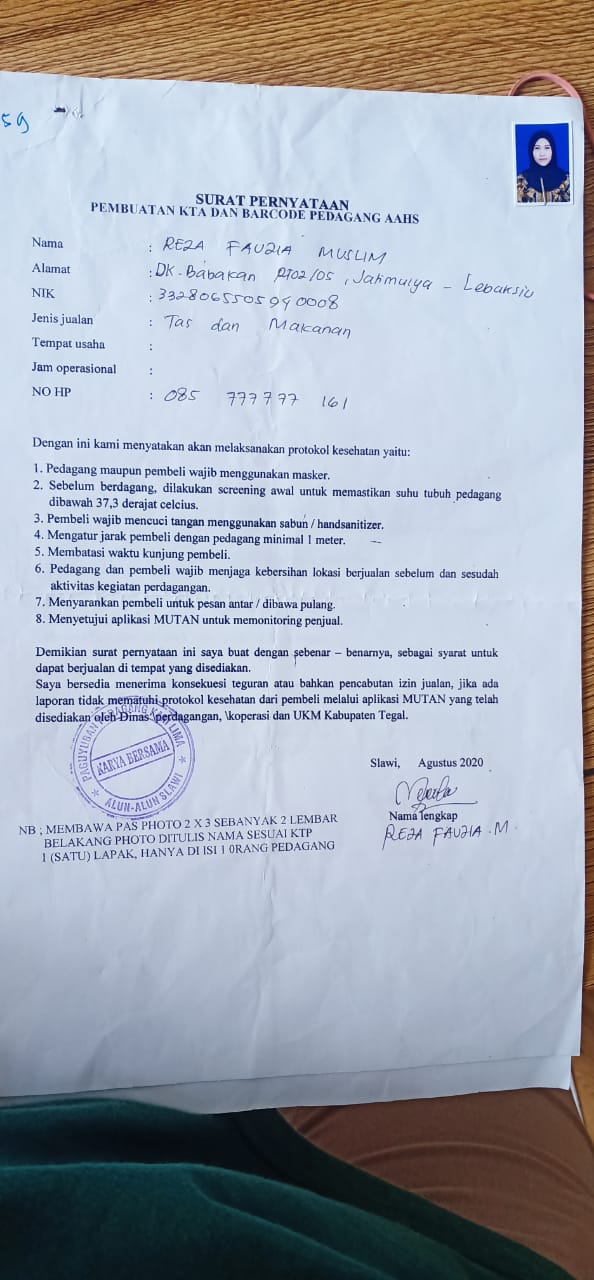 59
SURAT PERNYATAAN
PEMBUATAN KTA DAN BARCODE PEDAGANG AAHS
Nama : REZA FAUZIA MUSLIM
Alamat : DK. Babakan RT02/05, Jatimulya - Lebaksiu
NIK : 3328065505940008
Jenis jualan : Tas dan Makanan
Tempat usaha :
Jam operasional :
NO HP : 085 777777 161
Dengan ini kami menyatakan akan melaksanakan protokol kesehatan yaitu:
1. Pedagang maupun pembeli wajib menggunakan masker.
2. Sebelum berdagang, dilakukan screening awal untuk memastikan suhu tubuh pedagang
dibawah 37,3 derajat celcius.
3. Pembeli wajib mencuci tangan menggunakan sabun / handsanitizer.
4. Mengatur jarak pembeli dengan pedagang minimal 1 meter.
5. Membatasi waktu kunjung pembeli.
6. Pedagang dan pembeli wajib menjaga kebersihan lokasi berjualan sebelum dan sesudah
aktivitas kegiatan perdagangan.
7. Menyarankan pembeli untuk pesan antar / dibawa pulang.
8. Menyetujui aplikasi MUTAN untuk memonitoring penjual.
Demikian surat pernyataan ini saya buat dengan sebenar – benarnya, sebagai syarat untuk
dapat berjualan di tempat yang disediakan.
Saya bersedia menerima konsekuesi teguran atau bahkan pencabutan izin jualan, jika ada
laporan tidak mematuhi protokol kesehatan dari pembeli melalui aplikasi MUTAN yang telah
disediakan oleh Dinas \perdagangan, \koperasi dan UKM Kabupaten Tegal.
PAGUYUBAN PEDAGANG KAKI LIMA
KARYA BERSAMA
ALUN-ALUN SLAWI
Slawi, Agustus 2020
Nama lengkap
REZA FAUZIA .M.
NB ; MEMBAWA PAS PHOTO 2 X 3 SEBANYAK 2 LEMBAR
BELAKANG PHOTO DITULIS NAMA SESUAI KTP
1 (SATU) LAPAK, HANYA DI ISI 1 0RANG PEDAGANG